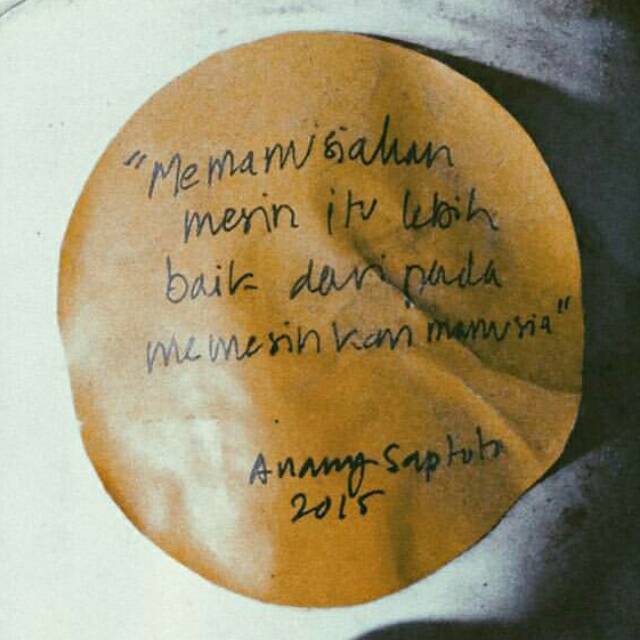 "Memanusiakan
mesin itu lebih
baik dari pada
memesinkan manusia"
Anang Saptoto
2015